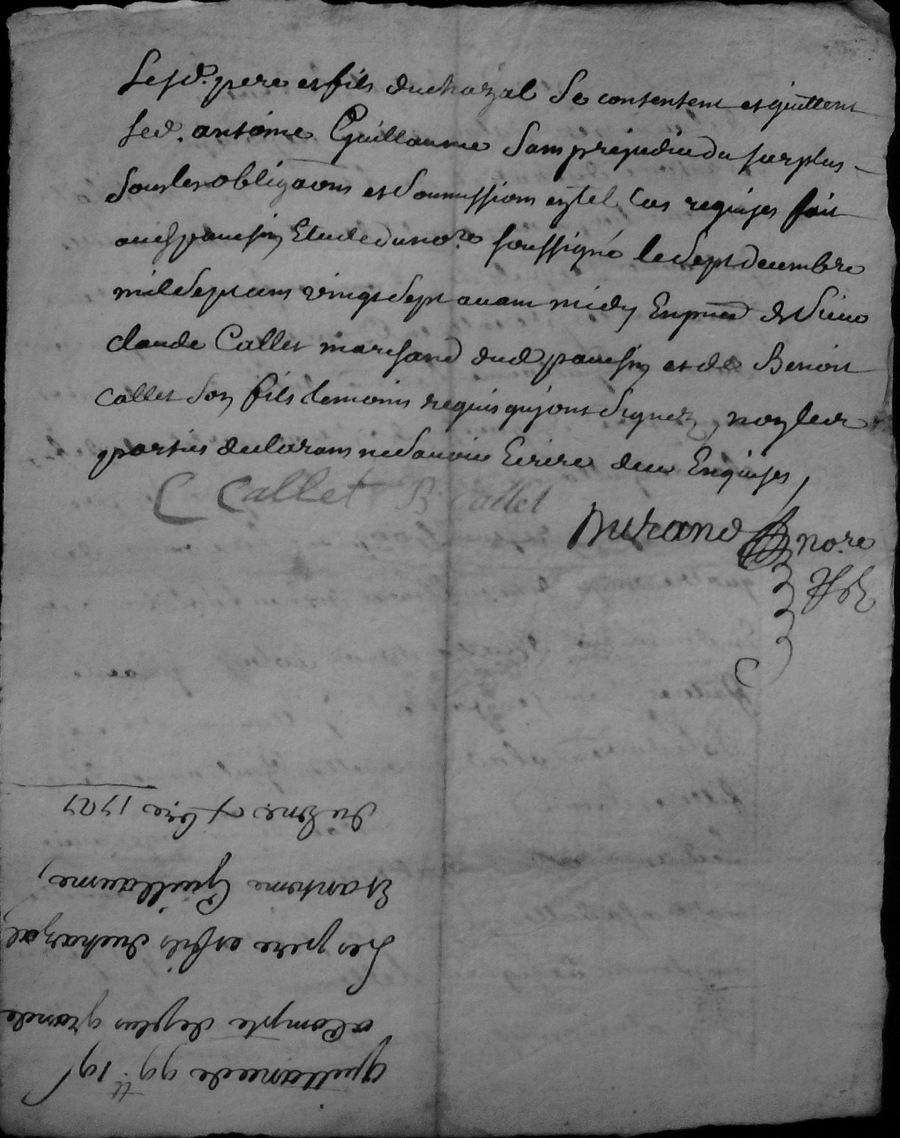 Lesd. pere et fils duchazal se contentent et quittent
led. antoine Guillaume sans prejudice du surplus
sous les obligaôns et soumissions et tel cas requises fait
aud Etude du no.re soussigné le sept decembre
mil sept cens vingt sept avant midy En pnce de Sieur
claude Callet marchand dud et de Benoit
callet son fils temoins requis qui ont signez, non les
parties declarans ne scavoir Ecrire deux Enquises
C Callet B Callet
Durand no.re
quittance de 99.tt 19s
a Compte de plus grande
Les pere et fils duchazal
Et antoine Guillaume,
Du 7me Xbre 1727